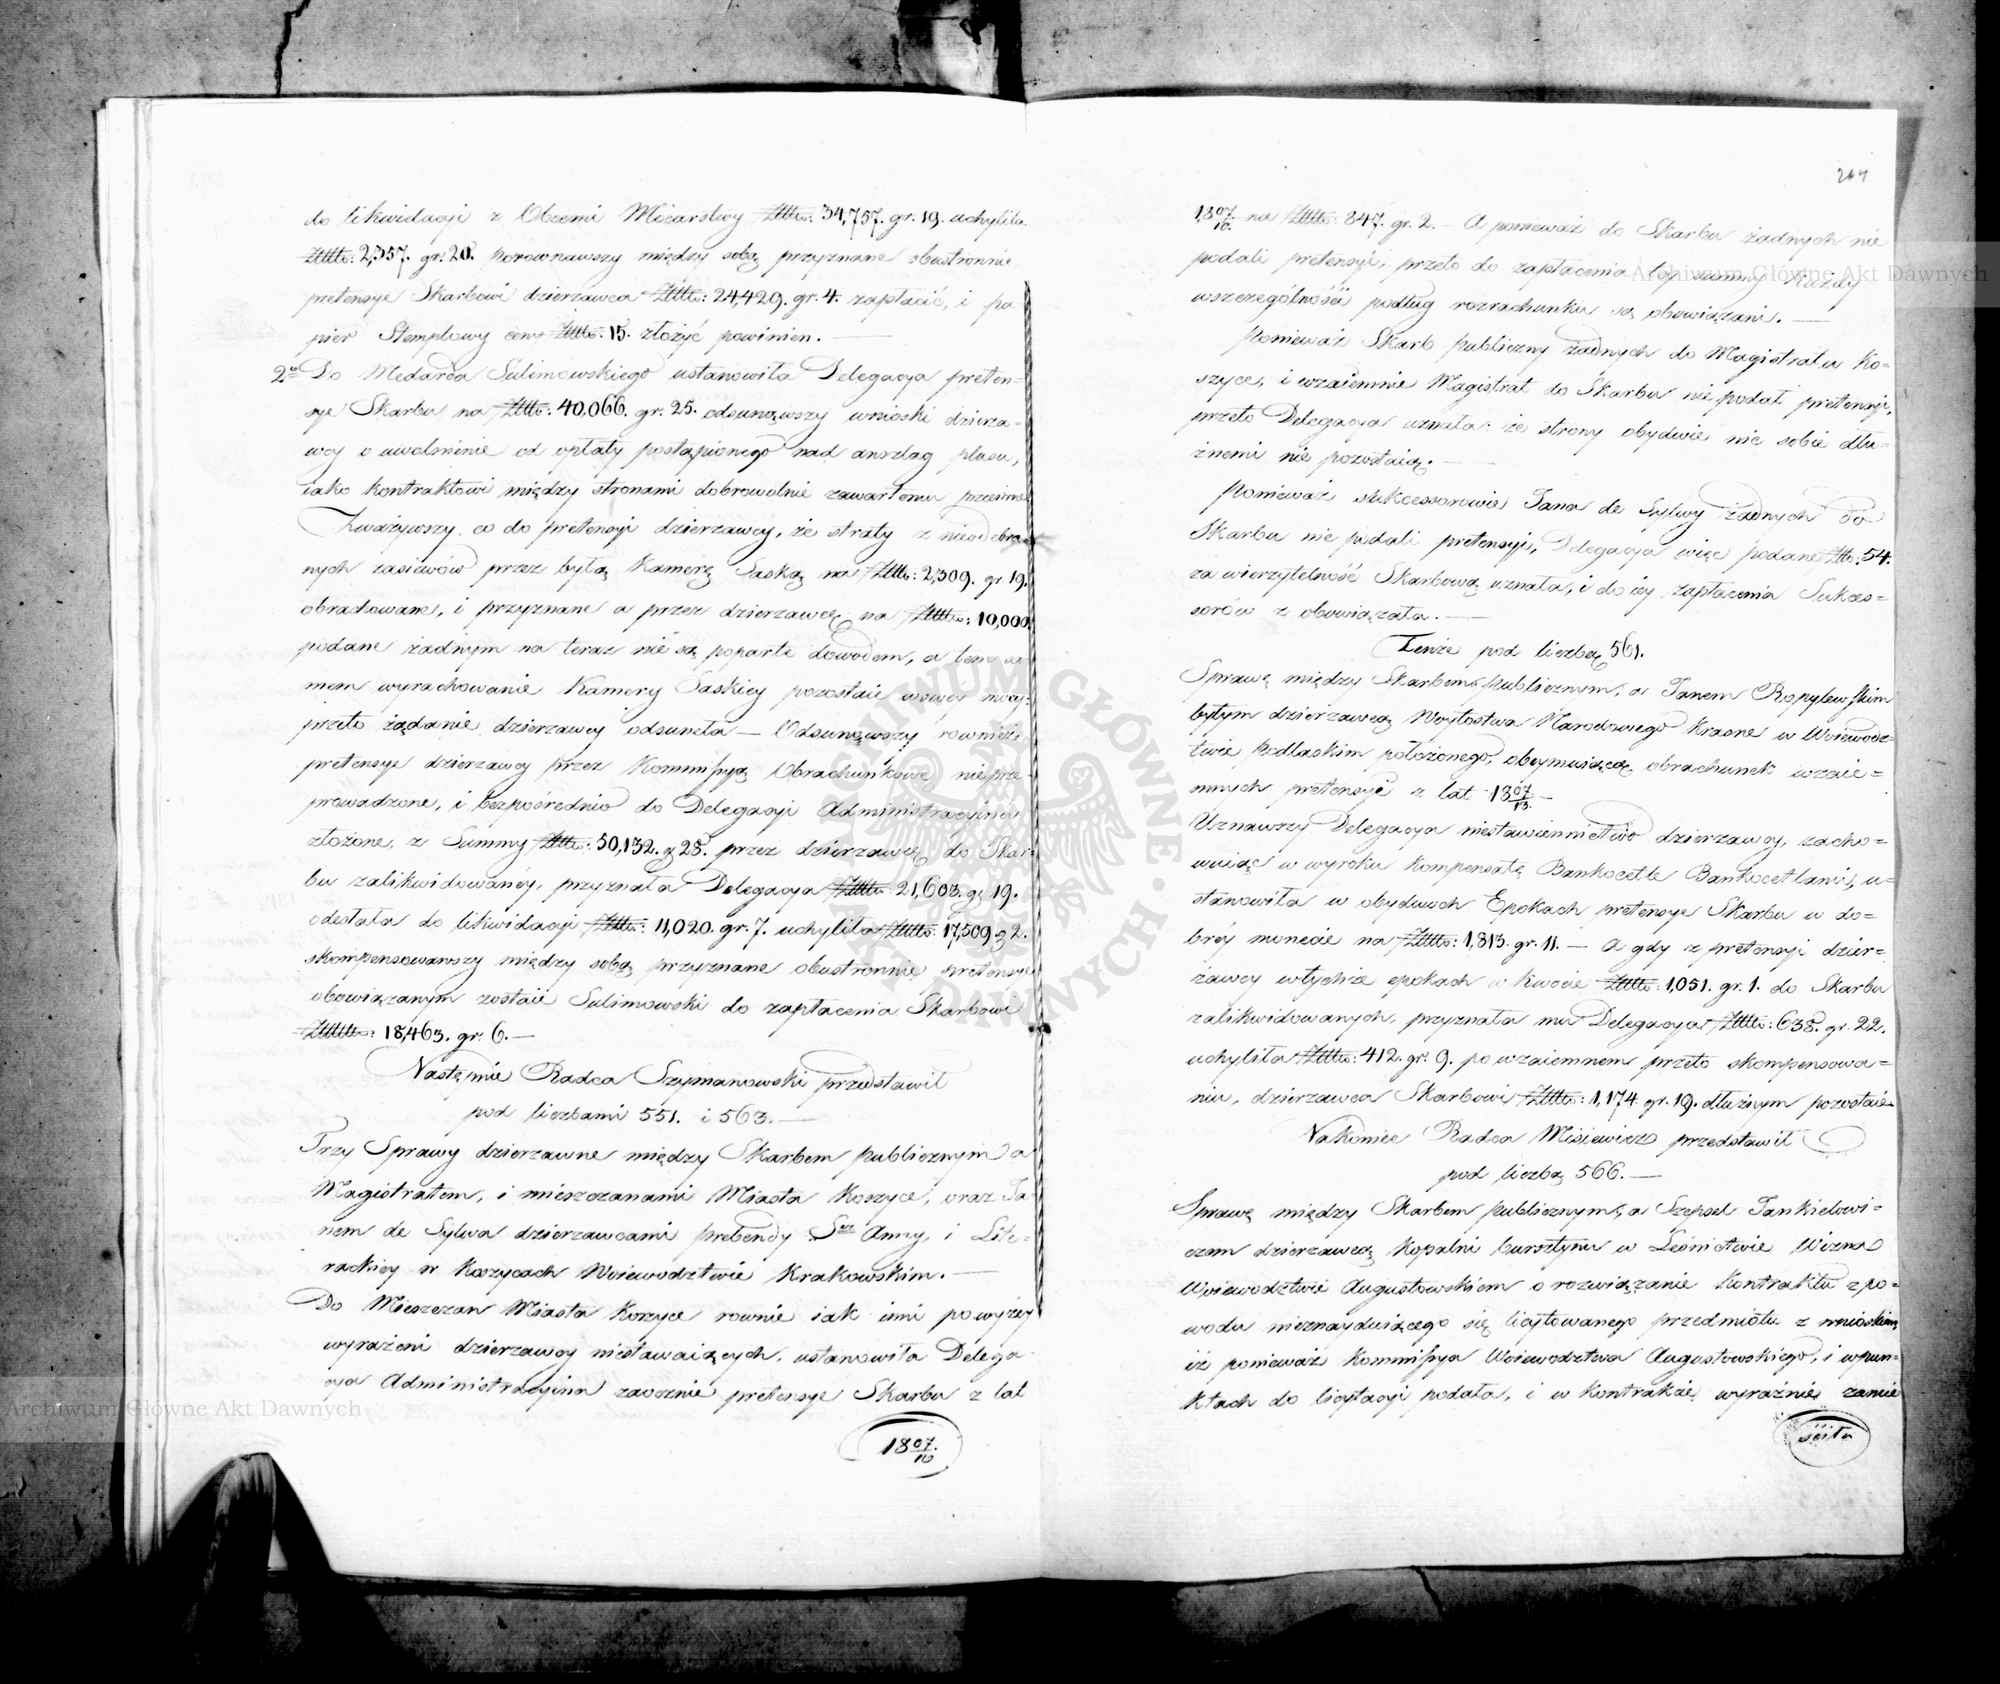 do likwidacyi z Obcemi Mocarstwy Złt: 34,757. gr. 19. uchyliła
Złt: 2,357. gr: 20. porownawszy między sobą przyznane obustronnie
pretensye Skarbowi dzierzawca Złt: 24,429. gr. 4. zapłacić, i pa
pier Stemplowy ceny Złt: 15. złożyć powinien. —
2o Do Medarda Sulimowskiego ustanowiła Delegacya preten=
sye Skarbu na Złt: 40,066. gr. 25. odsunąwszy wnioski dzierza=
wcy o uwolnienie od opłaty postąpionego nad anszlag plusu,
iako kontraktowi między stronami dobrowolnie zawartemu przeciwne
Zważywszy co do pretensyi dzierzawcy, że straty z nieodebra
nych zasiewów przez byłą Kamerę Saską na Złt: 2,309. gr 19.
obrachowane, i przyznane a przez dzierzawcę na Złt: 10,000
podane żadnym na teraz nie są poparte dowodem, a tem sa
mem wyrachowanie Kamery Saskiey pozostaie w swey mocy:
przeto żądanie dzierzawcy odsuneła — Odsunąwszy rownież
pretensye dzierzawcy przez Kommissyą Obrachunkową nieprze
prowadzone, i bezpośrednio do Delegacyi Administracyiney
złożone, z Summy Złt: 50,132. g 28. przez dzierzawcę do Skar=
bu zalikwidowaney, przyznała Delegacya Złt: 21,603. g 19.
odesłała do likwidacyi Złt: 11,020. gr. 7. uchyliła Złt: 17,509 g 2.
skompensowawszy między sobą przyznane obustronnie pretensye
obowiązanym zostaie Sulimowski do zapłacenia Skarbowi
Złt: 18,463. gr: 6. —
Następnie Radca Szymanowski przedstawił
pod liczbami 551. i 563. —
Trzy Sprawy dzierzawne między Skarbem publicznym a
Magistratem, i mieszczanami Miasta Koszyce, oraz Ja
nem de Sylwa dzierzawcami prebendy Stey Anny, i Lite=
rackiey w Koszycach Woiewodztwie Krakowskim. —
Do Mieszczan Miasta Koszyce rownie iak inni powyżey
wyrażeni dzierzawcy niestawaiących, ustanowiła Delega
cya Administracyina zaocznie pretensye Skarbu z lat
18 07/10
264
18 07/10 na Złt: 847. gr. 2. — A ponieważ do Skarbu żadnych nie
podali pretensyi, przeto do zapłacenia tey summy Każdy
wszczególności podług rozrachunku są obowiązani. —
Ponieważ Skarb Publiczny żadnych do Magistratu Ko=
szyce, i wzaiemnie Magistrat do Skarbu nie podał pretensyi,
przeto Delegacya uznała: że strony obydwie nic sobie dłu=
żnemi nie pozostaią. —
Ponieważ sukcessorowie Jana de Sylwy żadnych do
Skarbu nie podali pretensyi, Delegacya więc podane Złt: 54.
za wierzytelność Skarbową uznała, i do iey zapłacenia Sukces=
sorów z obowiązała. —
Tenże pod liczbą 561.
Sprawę między Skarbem Publicznym, a Janem Kopylewskim
byłym dzierzawcą Woytostwa Narodowego Krasne w Woiewodz=
twie Podlaskim położonego, obeymuiącą obrachunek wzaie=
mnych pretensyi z lat 18 07/13. —
Uznawszy Delegacya niestawiennictwo dzierzawcy, zacho=
wuiąc w wyroku kompensatę Bankocetle Bankocetlami, u=
stanowiła w obydwóch Epokach pretensye Skarbu w do=
brey monecie na Złt: 1,813. gr. 11. — A gdy z pretensyi dzier=
żawcy wtychże epokach w kwocie Złt: 1,051. gr. 1. do Skarbu
zalikwidowanych, przyznała mu Delegacya Złt: 638. gr. 22.
uchyliła Złt: 412. gr: 9. po wzaiemnem przeto skompensowa=
niu, dzierzawca Skarbowi Złt: 1,174 gr. 19. dłużnym pozostaie.
Nakoniec Radca Misiewicz przedstawił
pod liczbą 566. —
Sprawę między Skarbem publicznym, a Szepsel Jankielowi=
czem dzierzawcą Kopalni bursztynu w Leśnictwie Wizna
Woiewodztwie Augustowskiem o rozwiązanie Kontraktu z po=
wodu nieznayduiącego się licytowanego przedmiotu z wnioskiem
iż ponieważ Kommissya Woiewodztwa Augustowskiego, i w pun=
ktach do licytacyi podała, i w Kontrakcie wyraźnie zamie
ściła